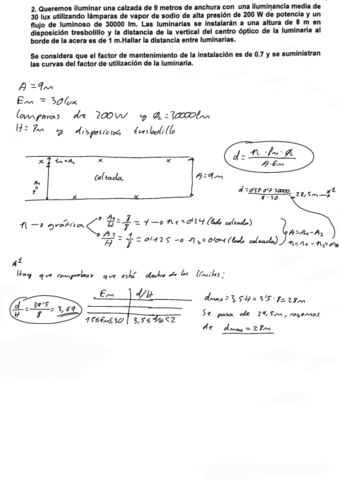 2. Queremos iluminar una calzada de 9 metros de anchura con una iluminancia media de
30 lux utilizando lámparas de vapor de sodio de alta presión de 200 W de potencia y un
flujo luminoso de 30000 lm. Las luminarias se instalarán a una altura de 8 m en
disposición tresbolillo y la distancia de la vertical del centro óptico de la luminaria al
borde de la acera es de 1 m.Hallar la distancia entre luminarias.
Se considera que el factor de mantenimiento de la instalación es de 0.7 y se suministran
las curvas del factor de utilización de la luminaria.
A = 9m
Em = 30 lux
Lámparas de 200W y ΦL = 30000 lm
H = 8m y disposición tresbolillo
d = n · fm · ΦL / A · Em
Calzada
A = 9m
n → gráfica
A2/H = 8/8 = 1 → n1 = 0'34 (lado calzada)
A1/H = 1/8 = 0'125 → n2 = 0'04 (lado calzada)
Hay que comprobar que está dentro de los límites:
Em d/H
15≤Em≤30 3,5≤d/H≤2
dmax = 3,5·H = 3'5·8 = 28m
Se pasa de 29,5m, cogemos
de dmax = 28m